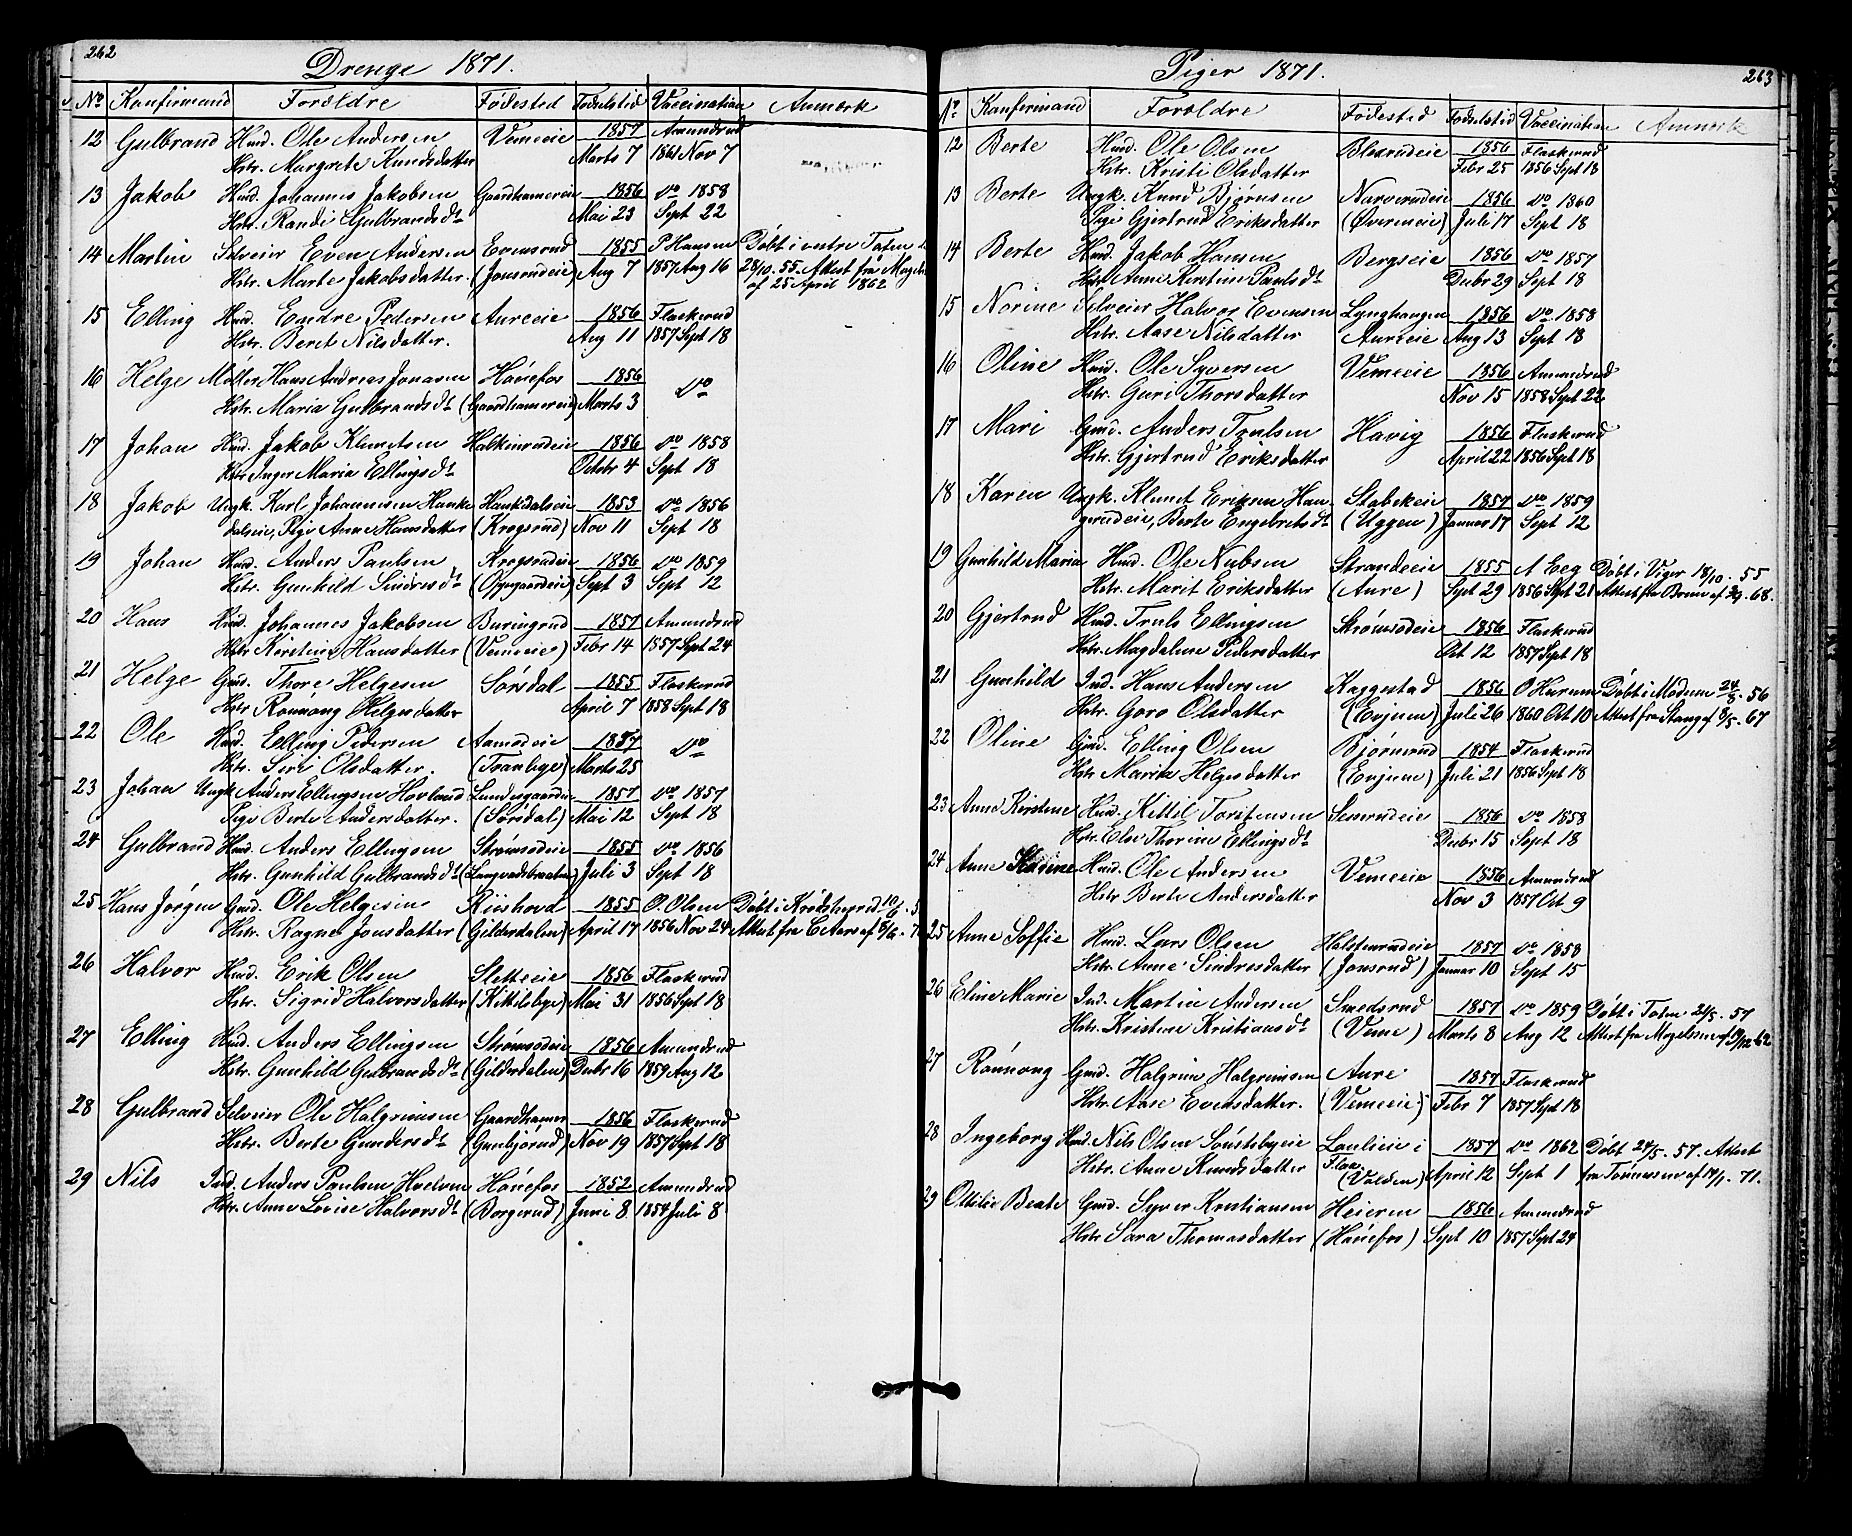 262
Drenge 1871.
No Konfirmand Forældre Fødested Fødselstid Vaccination Anmærk
12 Gulbrand Husd. Ole Andersen Vemeeie 1857 Amundrud
Hstr. Margrete Knudsdatter Marts 7 1861 Nov 7
13 Jakob Husd. Johannes Jakobsen Gaardhamereie 1856 Do 1858
Hstr. Randi Gulbrandsdt Mai 23 Sept 22
14 Martin Selveier Even Andersen Evensrud 1855 P Hansen Døbt i vestre Toten
Hstr. Marte Jakobsdatter (Jonsrudeie) Aug 7 1857 Aug 16 28/10. 55. Attest fra
af 25 April 1862
15 Elling Husd. Endre Pedersen Aureeie 1856 Flaskerud
Hstr. Beret Nilsdatter. Aug 11 1857 Sept 18
16 Helge Møller Hans Andreas Jonasen Hønefos 1856 Do
Hstr. Maria Gulbrandsdt (Gaardhamereie) Marts 3
17 Johan Husd. Jakob Klemetsen Halkinrudeie 1856 Do 1858
Hstr. Inger Maria Ellingsdt Octbr 4 Sept 18
18 Jakob Ungk. Karl Johannesen Hanke Hankedalseie 1853 Do 1856
dalseie, Pige Anne Hansdatter (Krogsrud) Nov 11 Sept 18
19 Johan Husd. Anders Paulsen Krogsrudeie 1856 Do 1859
Hstr. Gunhild Sindresdt (Opgaardeie) Sept 3 Sept 12
20 Hans Husd. Johannes Jakobsen Buringrud 1857 Amundrud
Hstr. Kirstine Hansdatter (Vemeeie) Febr 14 1857 Sept 24
21 Helge Grd. Thore Helgesen Sørsdal 1855 Flaskerud
Hstr Rønnøug Helgesdatter April 7 1858 Sept 18
22 Ole Husd. Elling Pedersen Aamodeie 1857 Do
Hstr. Siri Olsdatter. (Tranbye) Marts 25
23 Johan Ungk Anders Ellingsen Hovland Lundesgaarden 1857 Do 1857
Pige Berte Andersdatter. (Sørdal) Mai 12 Sept 18
24 Gulbrand Husd. Anders Ellingsen Strømsodeie 1855 Do 1856
Hstr. Gunhild Gulbrandsdt Juli 3 Sept 18
25 Hans Jørgen Grd. Ole Helgesen Riishovd 1855 O. Olsen Døbt i Krødsherred 10/6. 5
Hstr. Ragne Jonsdatter (Gilderdalen) April 17 1856 Nov 24 Attest fra C Aars af
26 Halvor Husd. Erik Olsen Sletteeie 1856 Flaskerud
Hstr. Sigrid Halvorsdatter (Kittilsbye) Mai 31 1856 Sept 18
27 Elling Husd. Anders Ellingsen Strømsodeie 1856 Amundrud
Hstr. Gunhild Gulbrandsdt (Gilderdalen) Decbr 16 1859 Aug 12
28 Gulbrand Selveier Ole Halgrimsen Gaardhamer 1856 Flaskerud
Hstr. Berte Gundersdt (Gunbjørud) Nov 19 1857 Sept 18
29 Nils Ind. Anders Paulsen Hønefos 1852 Amundrud
Hstr. Anne Lovise Halvorsdt (Borgerud) Juni 8 1854 Juli 8
263
Piger 1871.
No Konfirmand Forældre Fødested Fødselstid Vaccination Anmærk
12 Berte Husd. Ole Olsen Blexrudeie 1856 Flaskerud
Hstr. Kristi Olsdatter Febr 25 1856 Sept 18
13 Berte Ungk. Knud Bjørnsen Narverudeie 1856 Do 1860
Pige Gjertrud Eriksdatter (Øverneeie) Juli 17 Sept 18
14 Berte Husd. Jakob Hansen Bergseie 1856 Do 1857
Hstr Anne Kirstine Paulsdt Decbr 29 Sept 18
15 Norine Selveier Halvor Evensen Lynghaugen 1856 Do 1858
Hstr. Aase Nilsdatter Aureeie Aug 13 Sept 18
16 Oline Husd. Ole Syversen Vemeeie 1856 Amundrud
Hstr. Guri Thorsdatter Nov 15 1858 Sept 22
17 Mari Grd. Anders Paulsen Havig 1856 Flaskerud
Hstr. Gjertrud Eriksdatter April 22 1856 Sept 18
18 Karen Ungk. Klemet Eriksen Hau- Stabekeie 1857 Do 1859
gerudeie, Berte Engebretsdt (Uggen) Januar 17 Sept 12
19 Gunhild Maria Husd. Ole Nubsen Strandeeie 1855 A Eeg Døbt i Viger 18/10. 55
Hstr. Marit Eriksdatter (Aure) Sept 29 1856 Sept 21 Attest fra Bruun af 68.
20 Gjertrud Husd. Truls Ellingsen Strømsodeie 1856 Flaskerud
Hstr. Magdalene Pedersdatter Oct 12 1857 Sept 18
21 Gunhild Ind. Hans Andersen Kaggestad 1856 O Hurum Døbt i Modum 24/8. 56
Hstr. Goro Olsdatter (Evjum) Juli 26 1860 Oct 10 Attest fra Stang af 3/5. 67
22 Oline Grd. Elling Olsen Bjørnerud 1854 Flaskerud
Hstr Marite Helgesdatter (Evjum) Juli 21 1856 Sept 18
23 Anne Kirstene Husd. Kittil Torstensen Semrudeie 1856 Do 1858
Hstr. Else Thorine Ellingsdt Decbr 15 Sept 18
24 Anne Karine Husd. Ole Andersen Vemeeie 1856 Amundrud
Hstr Berte Andersdatter Nov 3 1857 Oct 9
25 Anne Soffie Husd. Lars Olsen Halstenrudeie 1857 Do 1858
Hstr. Anne Sindresdatter (Jonsrud) Januar 10 Sept 15
26 Eline Marie Ind. Martin Andersen Smedsrud 1857 Do 1859 Døbt i Toten 24/5. 57
Hstr. Kristine Kristiansdt (Veme) Marts 8 Aug 12 Attest fra Magelssen af 62
27 Rønnøug Grd. Halgrim Halgrimsen Aure 1857 Flaskerud
Hstr. Aase Evensdatter. (Vemeeie) Febr 7 1857 Sept 18
28 Ingeborg Husd. Nils Olsen Sønstebyeie Lauleie i 1857 Do 1862 Døbt 24/5. 57. Attest
Hstr. Anne Knudsdatter Flaa, (Valden) April 12 Sept 1 fra Tønnesen af 14/1. 71.
29 Ottilie Beate Grd. Syver Kristiansen Heieren 1856 Amundrud
Hstr Sara Thomasdatter (Hønefos) Sept 10 1857 Sept 24